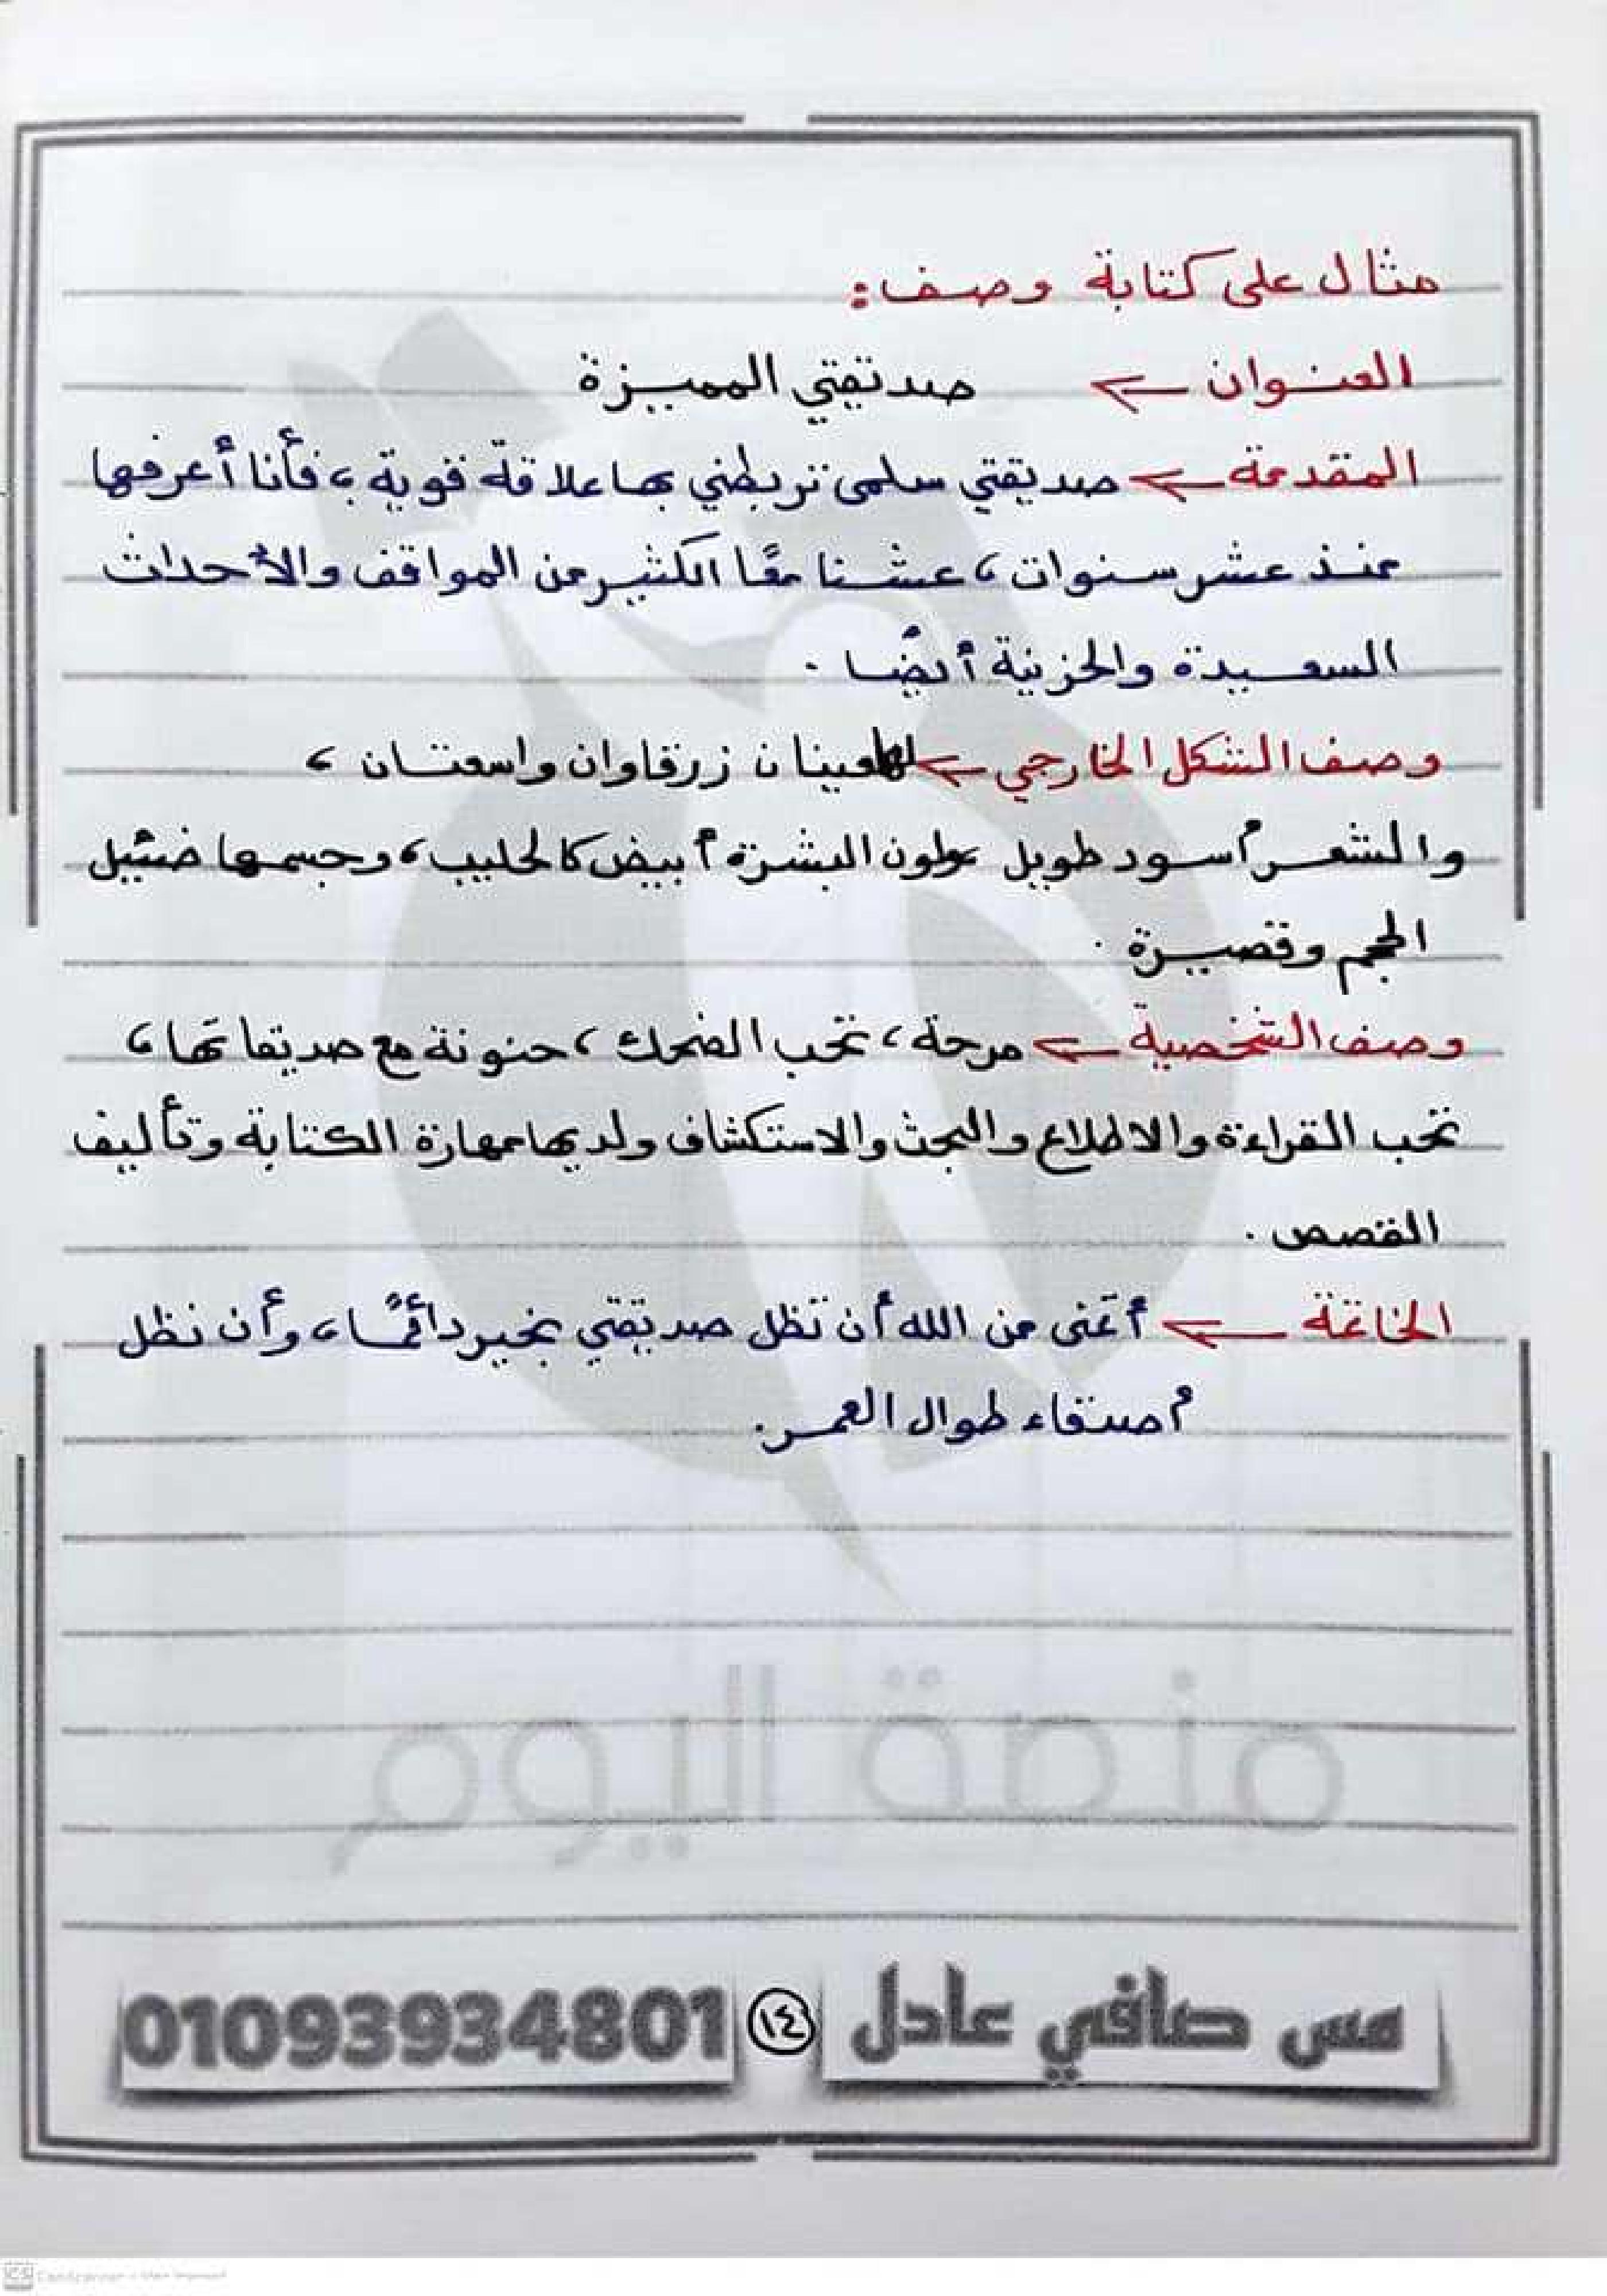 مثال على كتابة وصف:
العنوان ← صديقتي المميزة
المقدمة ← صديقتي سلمى تربطني بها علاقة قوية، فأنا أعرفها
منذ عشر سنوات، عشنا معًا الكثير من المواقف والأحداث
السعيدة والحزينة أيضًا.
وصف الشكل الخارجي ← لها عينان زرقاوان واسعتان،
والشعر أسود طويل ولون البشرة أبيض كالحليب، وجسمها ضئيل
الحجم وقصيرة.
وصف الشخصية ← مرحة، تحب الضحك، حنونة مع صديقاتها،
تحب القراءة والاطلاع والبحث والاستكشاف ولديها مهارة الكتابة وتأليف
القصص.
الخاتمة ← أتمنى من الله أن تظل صديقتي بخير دائمًا، وأن نظل
أصدقاء طوال العمر.
منصة اليوم
مس صافي عادل ١٤ 01093934801
CS CamScanner